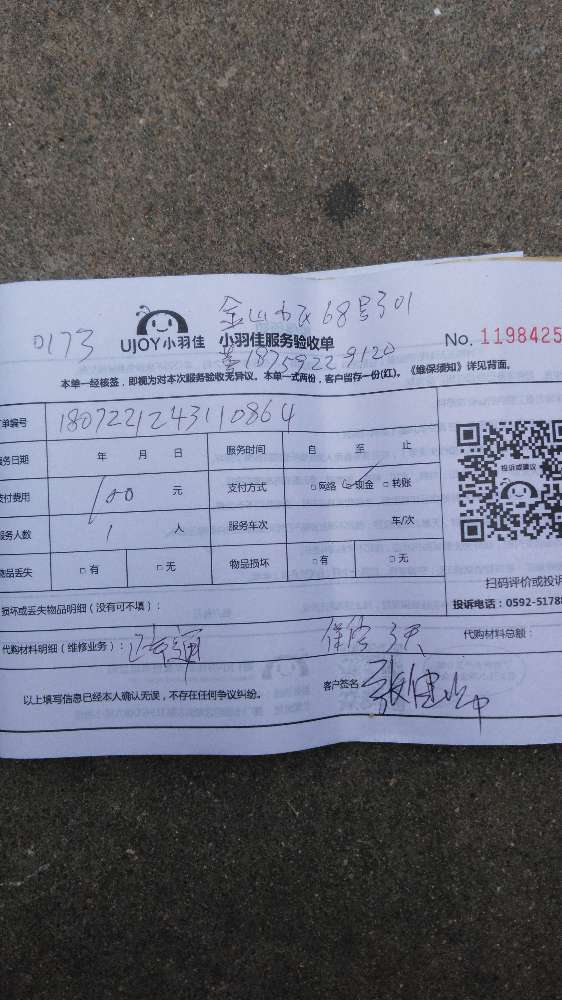 金山小区68号301
0173 UJOY小羽佳 小羽佳服务验收单 No. 1198425
18759229120
本单一经核签，即视为对本次服务验收无异议。本单一式两份，客户留存一份(红)。《维保须知》详见背面。
订单编号 1807221243110864
服务日期 年 月 日 服务时间 自 至 止
支付费用 100 元 支付方式 □网络 ☑现金 □转账
服务人数 1 人 服务车次 车/次
物品丢失 □有 □无 物品损坏 □有 □无
投诉或建议
扫码评价或投诉
投诉电话：0592-51788
损坏或丢失物品明细（没有可不填）：
代购材料明细（维修业务）： 疏通 保修3天 代购材料总额：
以上填写信息已经本人确认无误，不存在任何争议纠纷。 客户签名：